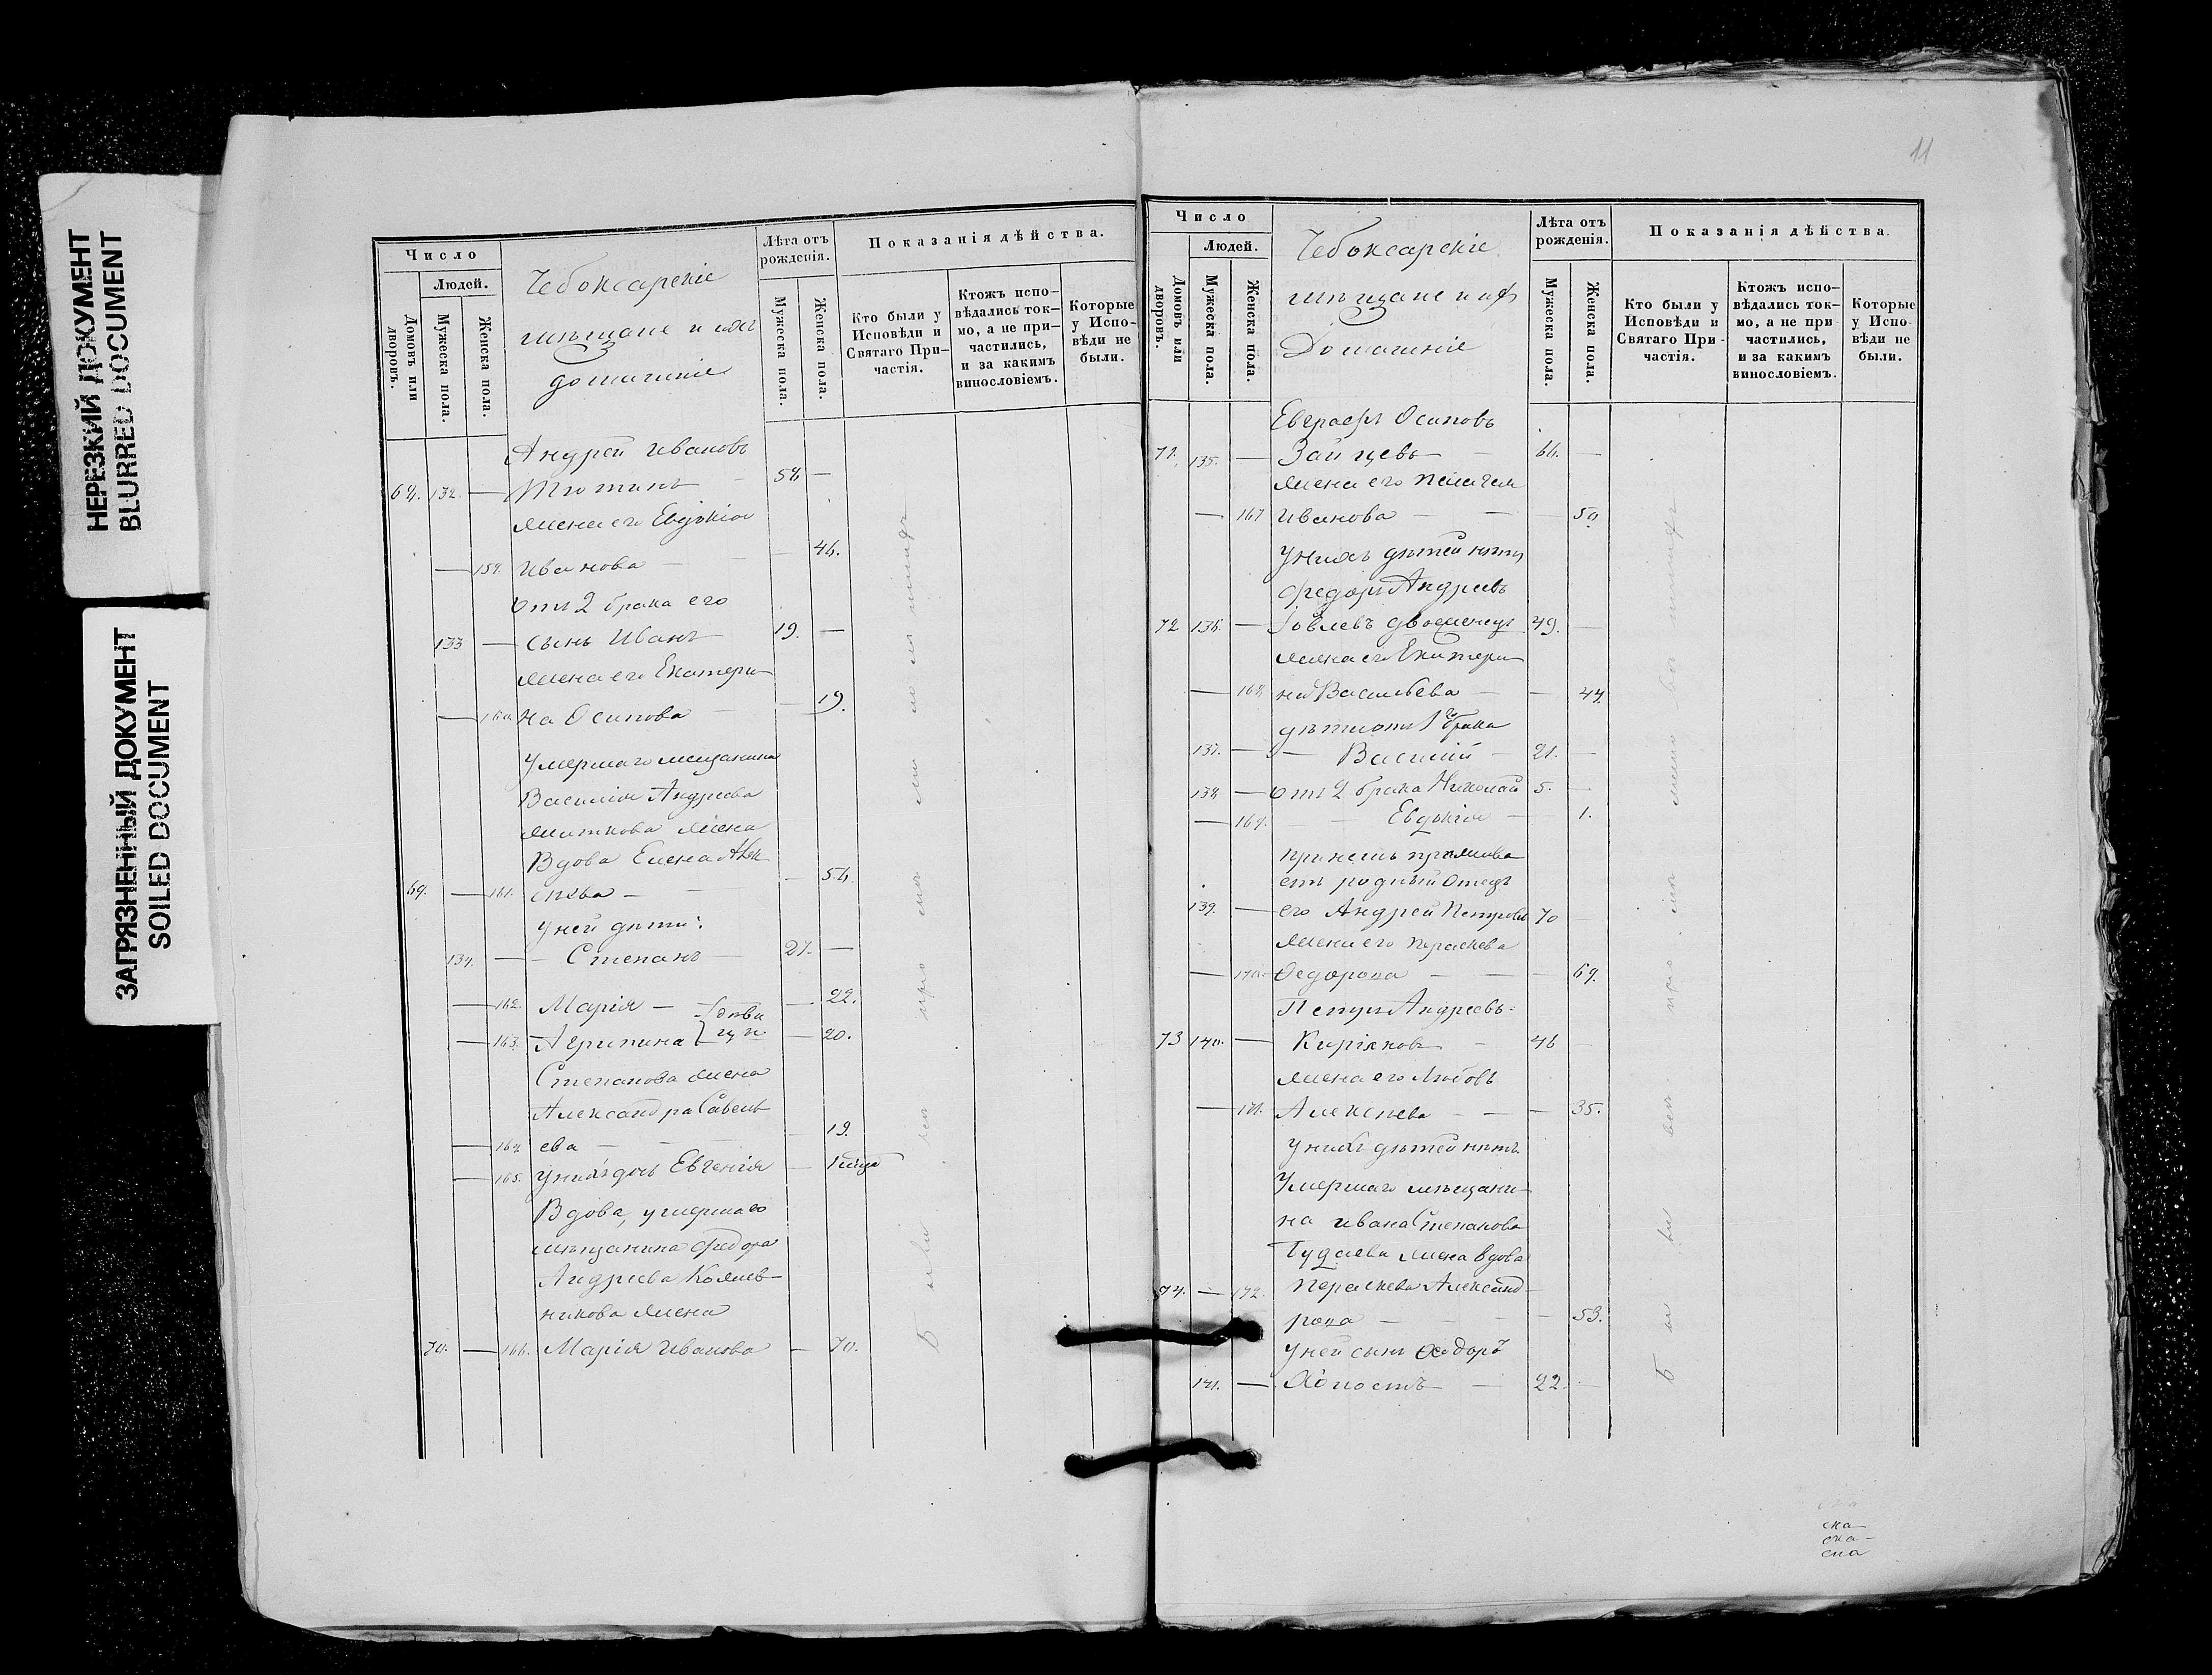 НЕРЕЗКИЙ ДОКУМЕНТ
BLURRED DOCUMENT
ЗАГРЯЗНЕННЫЙ ДОКУМЕНТ
SOILED DOCUMENT
Число
Людей.
Домовъ или дворовъ.
Мужеска пола.
Женска пола.
Чебоксарскіе
мѣщане и ихъ
домашніе
Лѣта отъ рожденія.
Мужеска пола.
Женска пола.
Показанія дѣйства.
Кто были у Исповѣди и Святаго При-частія.
Ктожъ испо-вѣдались ток-мо, а не при-частились, и за какимъ винословіемъ.
Которые у Испо-вѣди не были.
Андрей Ивановъ
68. 132. — 58 —
жена его Евдокія
— 159. Иванова — 46.
отъ 2 брака его
133 — сынъ Иванъ 19. —
жена его Екатери-
— 160. на Осипова — 19.
Умершаго мещанина
Василія Андреева
жена
Вдова Елена Алек
69. — 161. сѣева — — 56.
у ней дѣти:
134. — Степанъ 27. —
— 162. Марія — дѣви — 22.
— 163. Агрипина цы — 20.
Степанова жена
Александра Савель
— 164 ева — 19.
— 165. у нихъ дочь Евгенія — 1 года
Вдова, умершаго
мѣщанина Федора
Андреева Кожев-
никова жена
70. — 166. Марія Иванова — 70.
11
Число
Людей.
Домовъ или дворовъ.
Мужеска пола.
Женска пола.
Чебоксарскіе
мѣщане и ихъ
Домашніе
Лѣта отъ рожденія.
Мужеска пола.
Женска пола.
Показанія дѣйства.
Кто были у Исповѣди и Святаго При-частія.
Ктожъ испо-вѣдались ток-мо, а не при частились, и за какимъ винословіемъ.
Которые у Испо-вѣди не были.
Евграфъ Осиповъ
71. 135. — Зайцевъ — 66. —
жена его Пелагея
— 167 Иванова — — 50.
У нихъ дѣтей нѣтъ
Федоръ Андреевъ
72 136. — двоеженецъ 49. —
жена его Екатери-
— 168. на Васильева — — 44.
дѣти отъ 1го брака
137. — — Василій — 21. —
138. — отъ 2 брака Николай 5. —
— 169. — — Евдокія — 1.
при немъ прожива
етъ родный отецъ
139. — его Андрей Петровъ 70
жена его Параскева
— 170. Федорова — — — 69.
Петръ Андреевъ
73 140. — Киріяковъ — 46 —
жена его Любовь
— 171. Алексѣева — — — 35.
У нихъ дѣтей нѣтъ
Умершаго мѣщани-
на Ивана Степанова
жена вдова
74. — 172. Параскева Александ-
рова — — — — 53.
У ней сынъ Ѳеодоръ
141. — Холостъ — 22. —